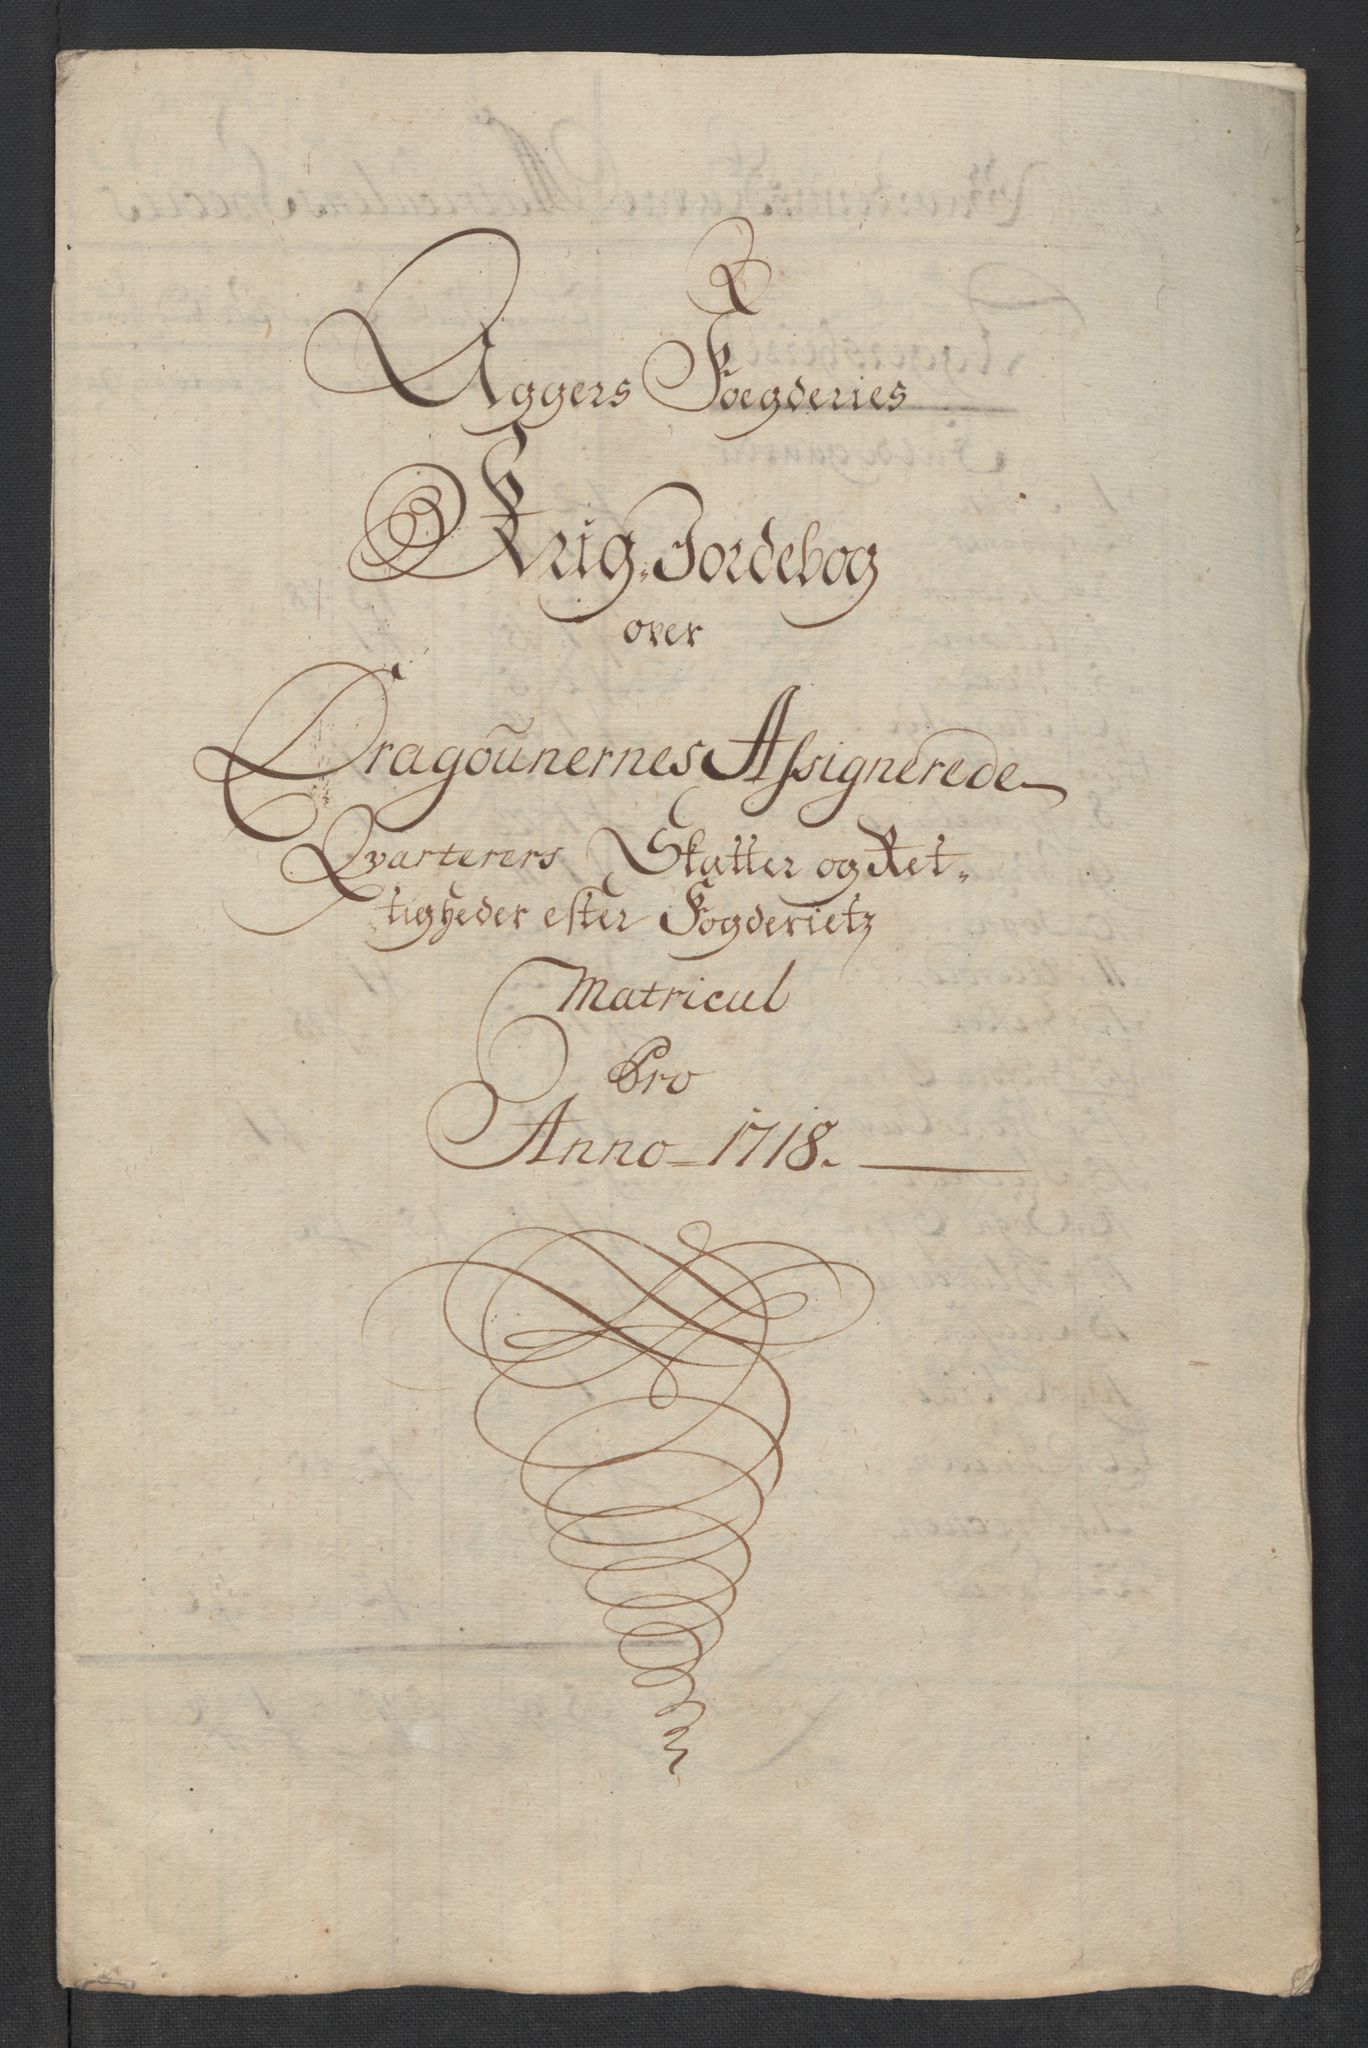 Aggers Foegderies
Krig-Jordebog
over
Dragoũnernes Assignerede
Qvarterers Skatter og Ret-
tigheder efter Fogderietz
Matricul
Pro
Anno-1718.